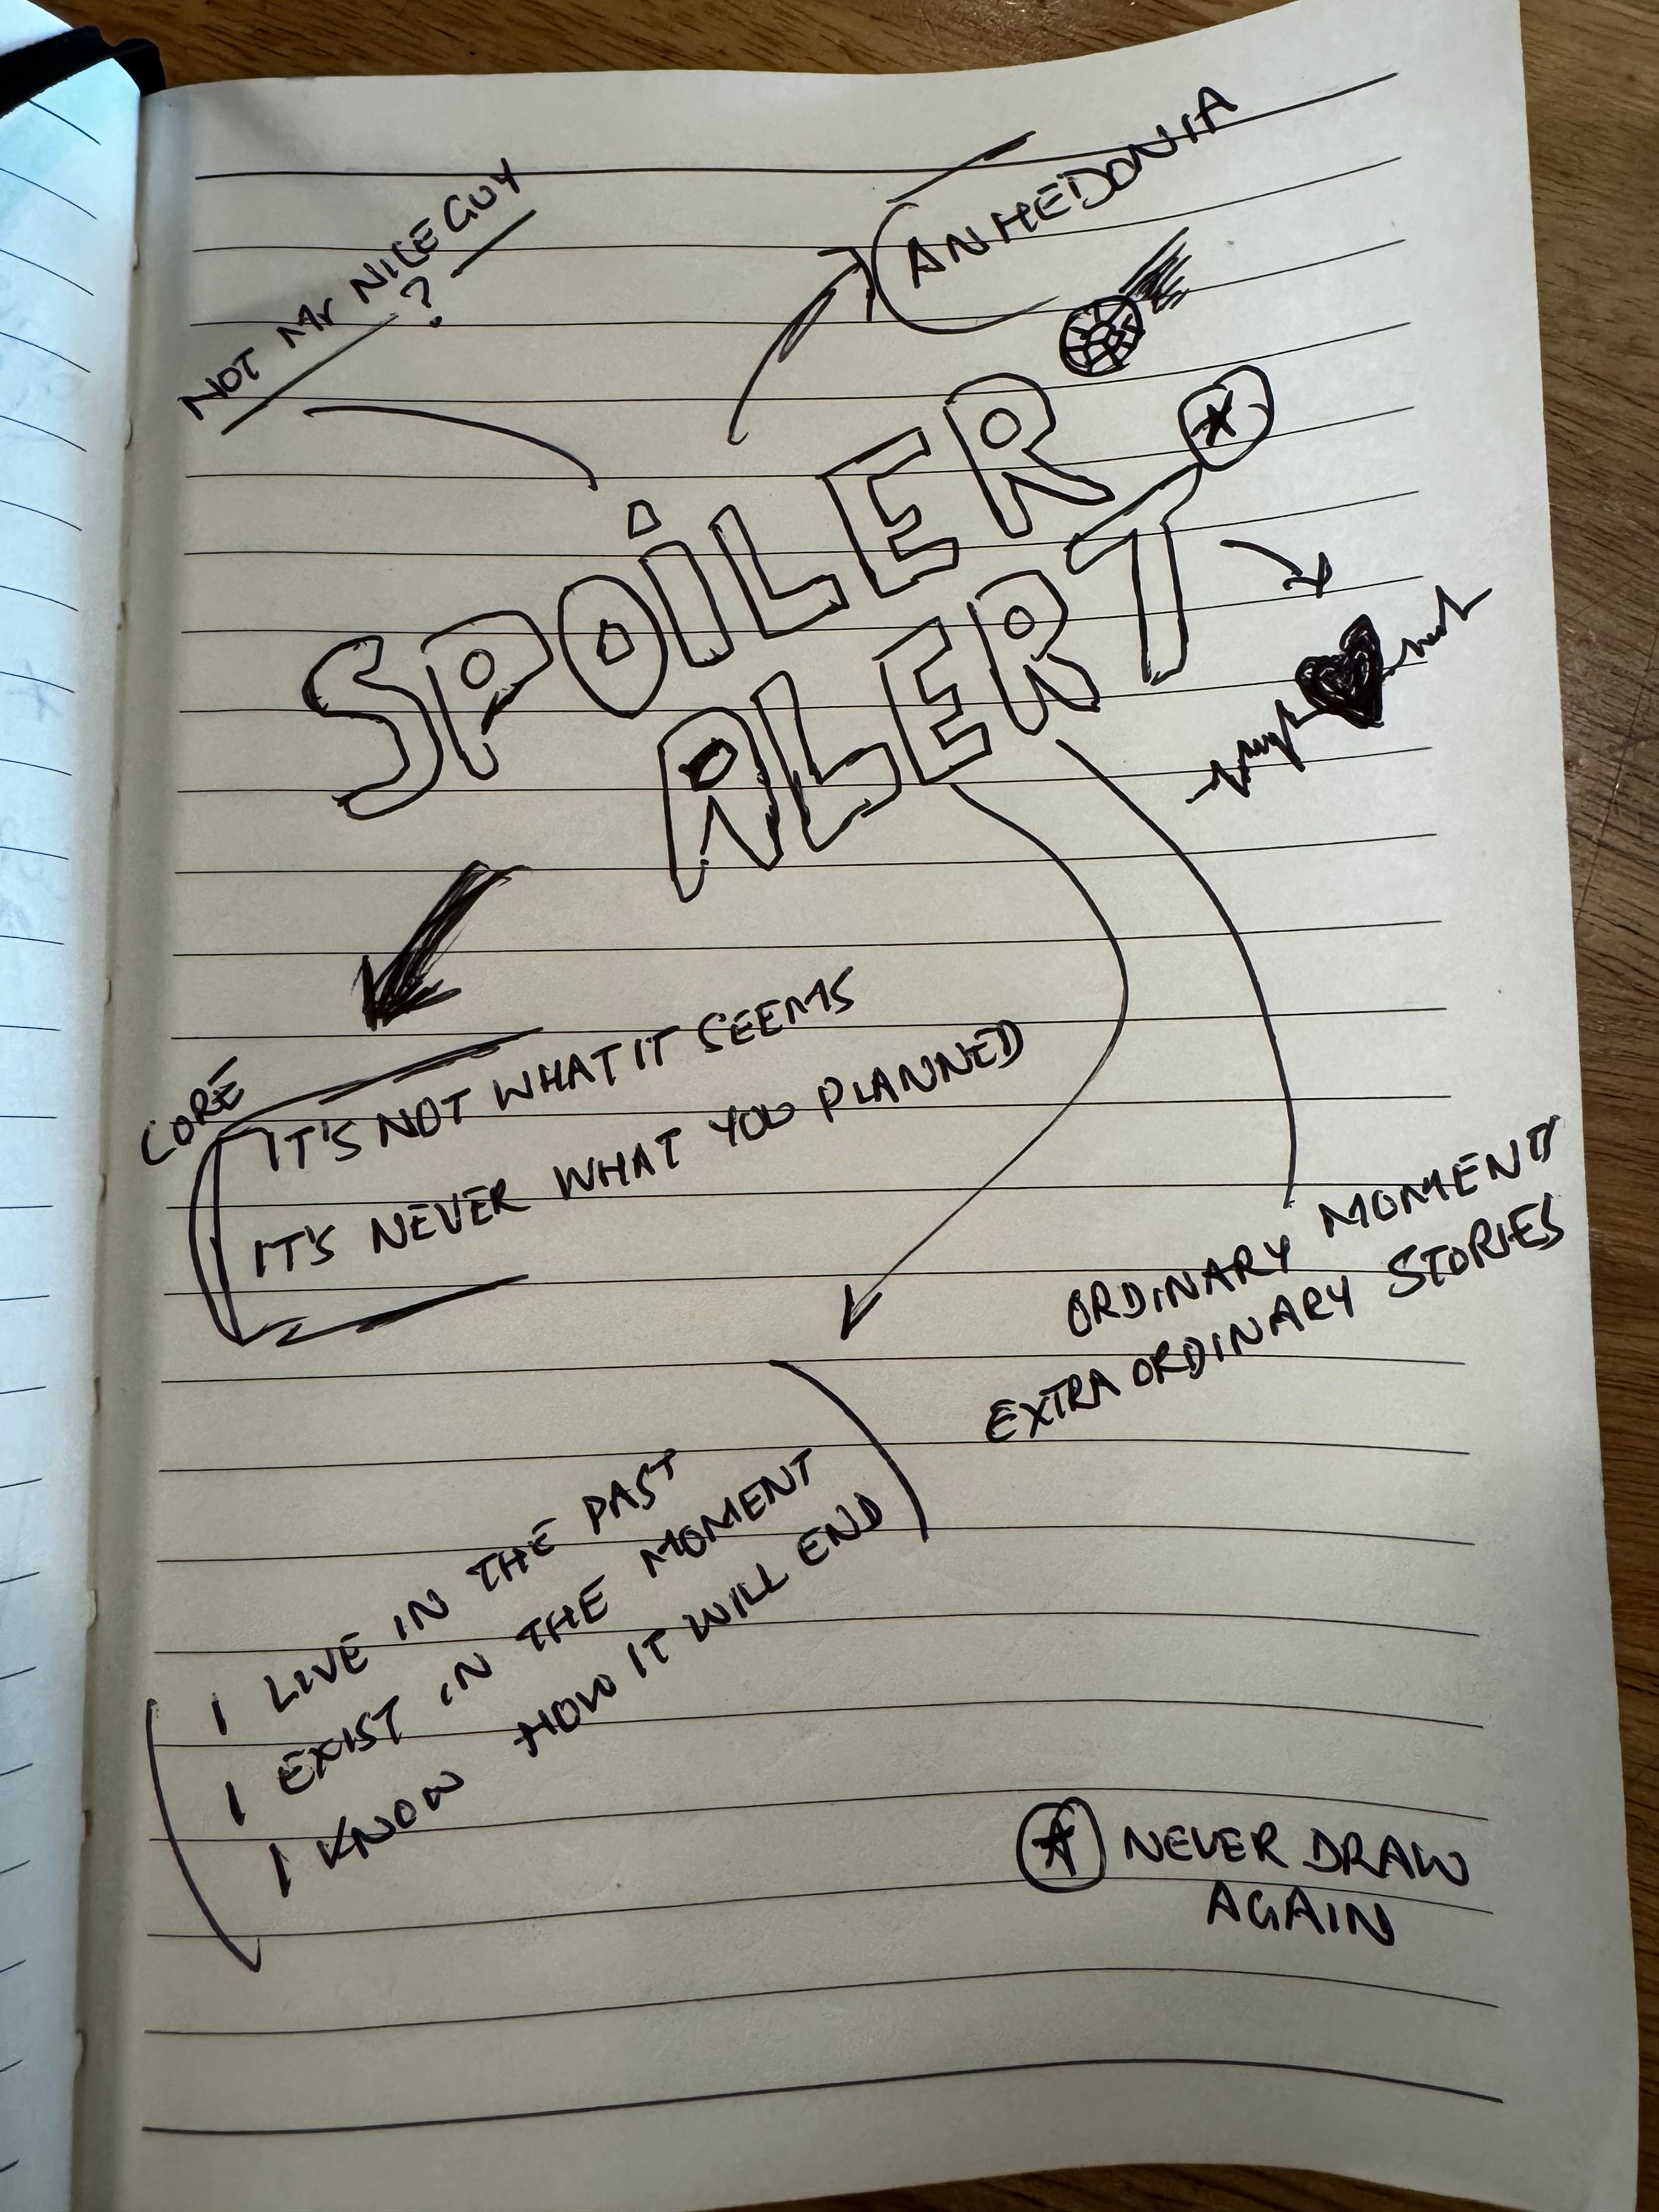 NOT Mr NICE GUY
?
ANHEDONIA
SPOILER
ALERT
CORE
IT'S NOT WHAT IT SEEMS
IT'S NEVER WHAT YOU PLANNED
ORDINARY MOMENTS
EXTRA ORDINARY STORIES
I LIVE IN THE PAST
I EXIST IN THE MOMENT
I KNOW HOW IT WILL END
NEVER DRAW
AGAIN